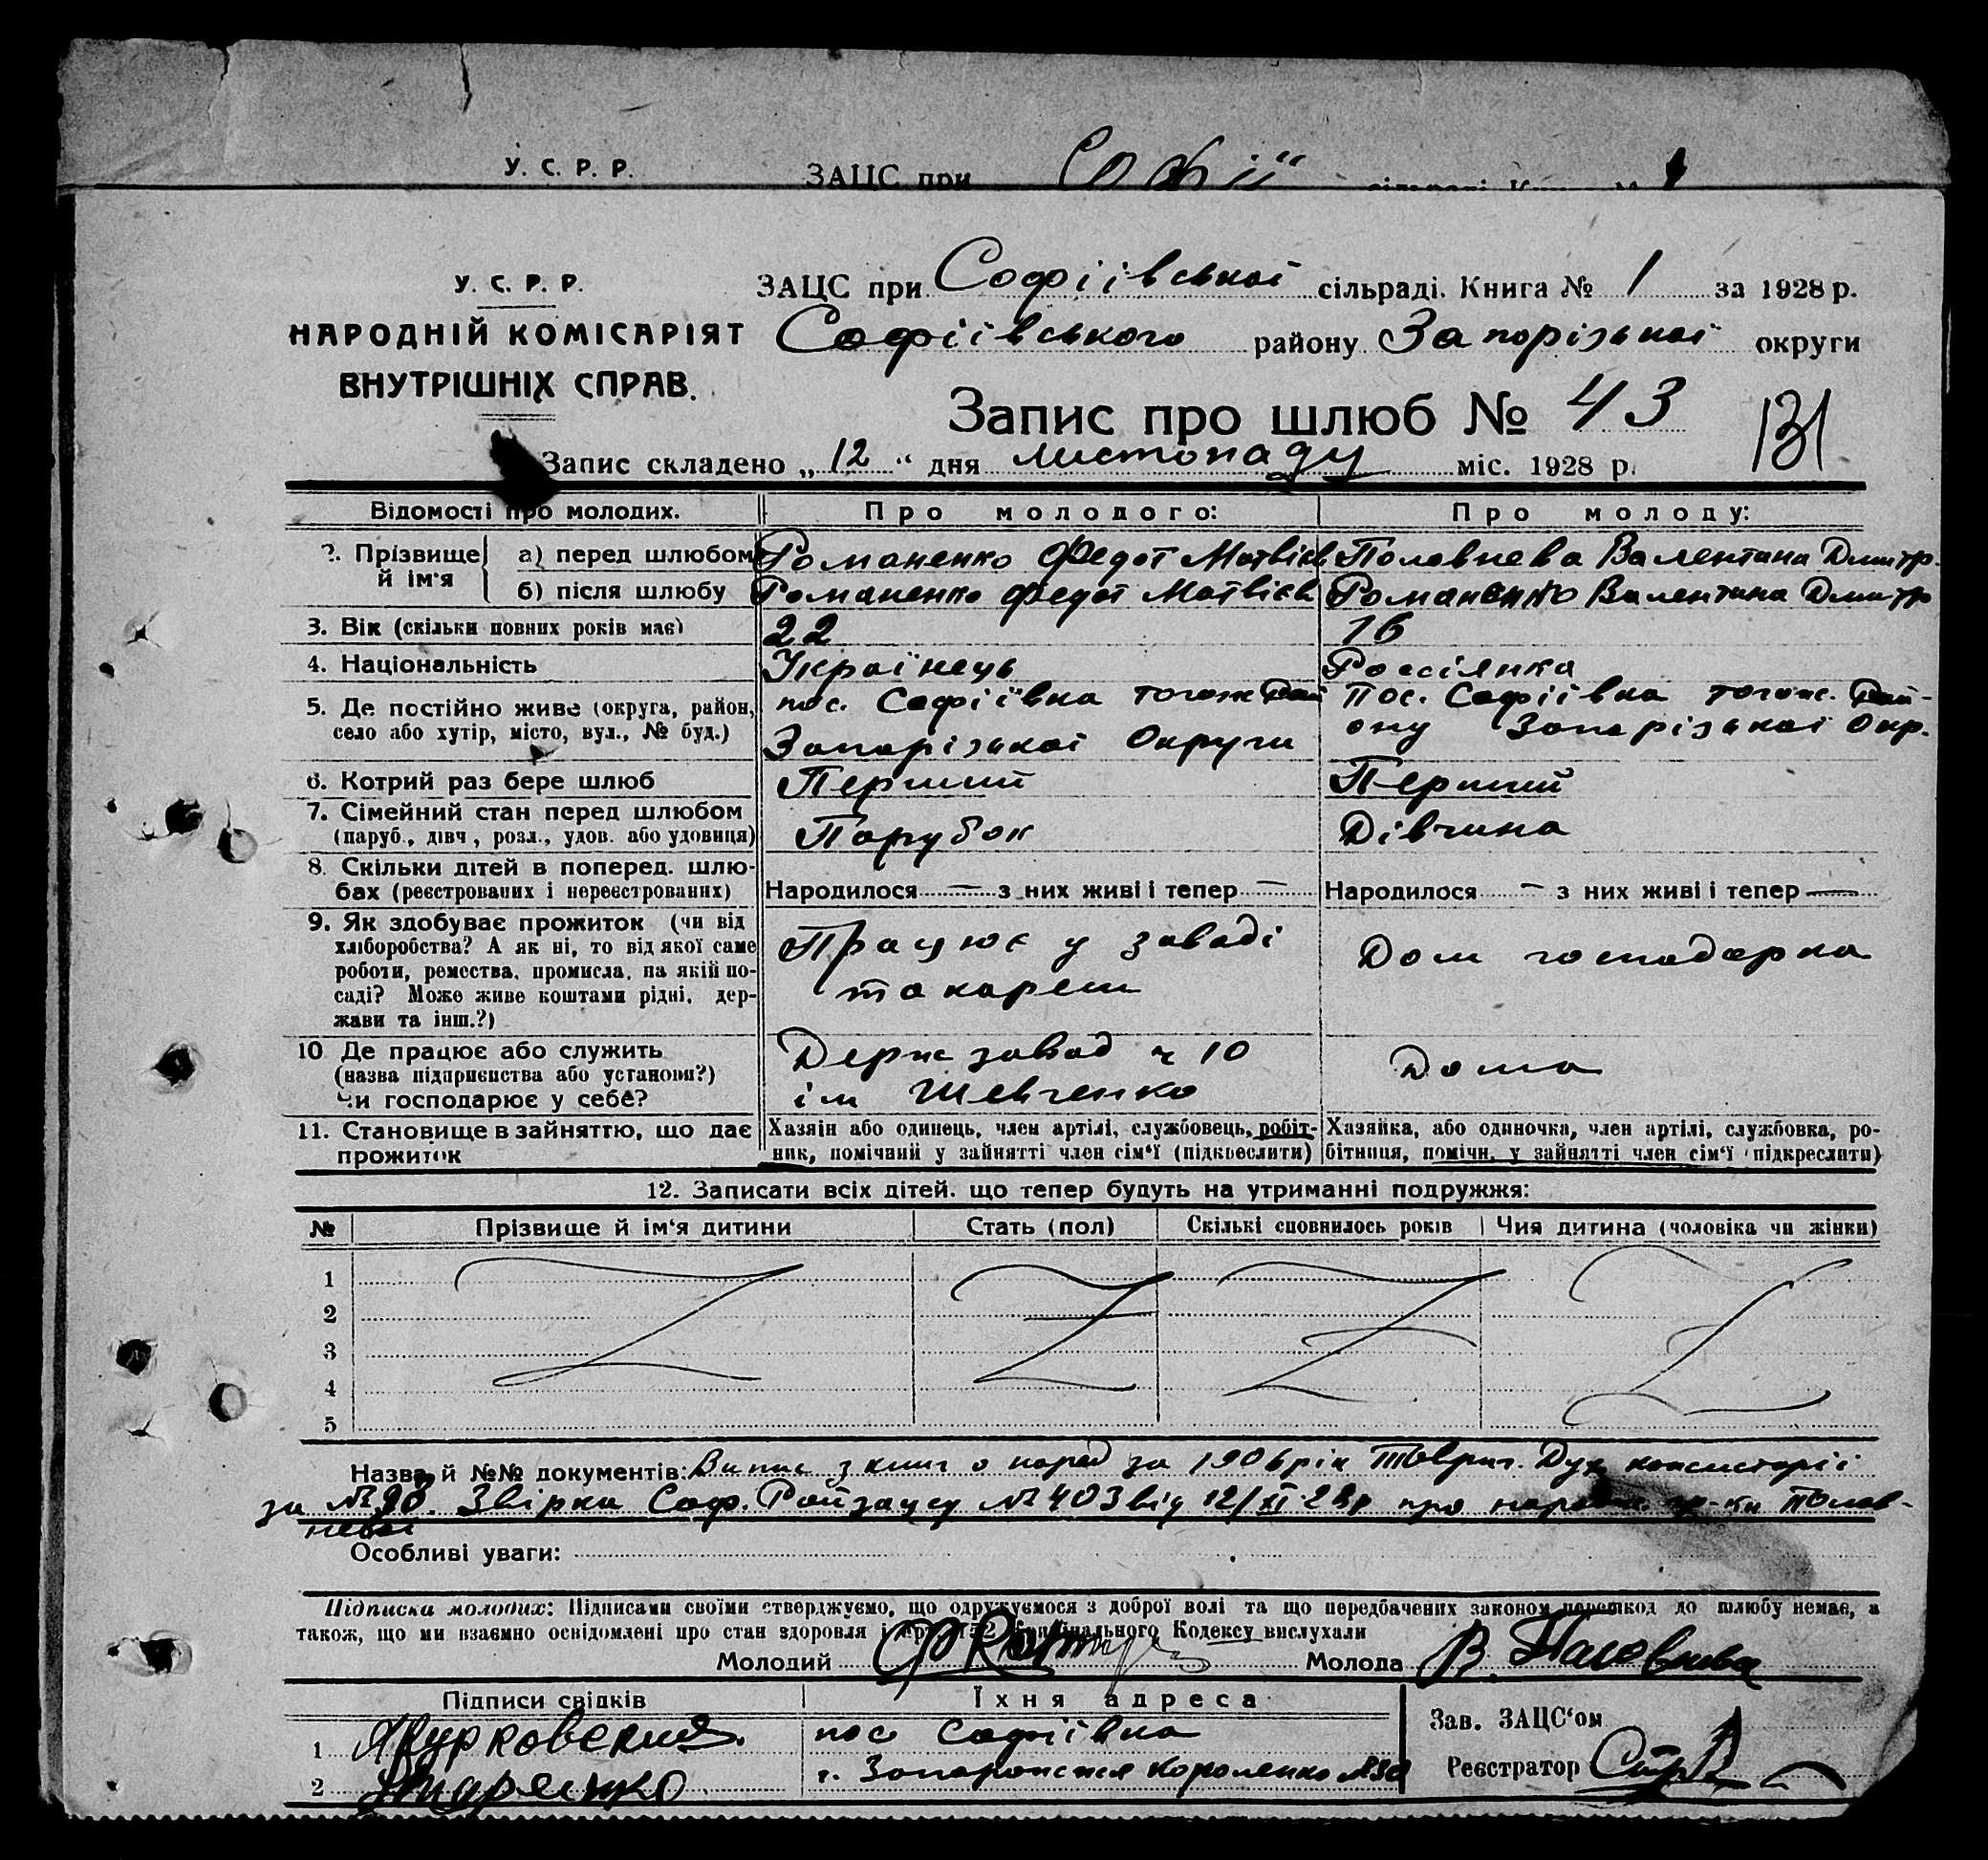 У. С. Р. Р. ЗАЦС при Софії
У. С. Р. Р.
НАРОДНІЙ КОМІСАРІЯТ
ВНУТРІШНІХ СПРАВ.
ЗАЦС при Софіівськоі сільраді. Книга № 1 за 1928 р.
Софіівського району Запорізькоі округи
Запис про шлюб № 43
131
Запис складено „12“ дня листопаду міс. 1928 р.
Відомості про молодих. Про молодого: Про молоду:
2. Прізвище й ім‘я
а) перед шлюбом Романенко Федот Матвієв Половнева Валентина Дмитр.
б) після шлюбу Романенко Федот Матвієв Романенко Валентина Дмитр
3. Вік (скільки повних років має) 22 16
4. Національність Украінець Россіянка
5. Де постійно живе (округа, район, пос. Софіівка тогож Рай Пос. Софіівка тогож. Рай-
село або хутір, місто, вул., № буд.) Запорізькоі Округи ону Запорізькоі Окр.
6. Котрий раз бере шлюб Перший Перший
7. Сімейний стан перед шлюбом Парубок Дівчина
(паруб., дівч., розл., удов. або удовиця)
8. Скільки дітей в поперед. шлю-
бах (реєстрованих і нереєстрованих) Народилося — з них живі і тепер — Народилося — з них живі і тепер —
9. Як здобуває прожиток (чи від
хліборобства? А як ні, то від якої саме Працює у заводі Дом господарка
роботи, ремества, промисла, на якій по-
саді? Може живе коштами рідні, дер- токарем
жави та інш.?)
10 Де працює або служить Держ завод ч 10 Дома
(назва підприємства або установи?)
Чи господарює у себе? ім Шевченко
11. Становище в зайняттю, що дає Хазяїн або одинець, член артілі, службовець, робіт- Хазяйка, або одиночка, член артілі, службовка, ро-
прожиток ник, помічний у зайнятті член сім‘ї (підкреслити) бітниця, помічн. у зайнятті член сім‘ї (підкреслити)
12. Записати всіх дітей. що тепер будуть на утриманні подружжя:
№ Прізвище й ім‘я дитини Стать (пол) Скількі сповнилось років Чия дитина (чоловіка чи жінки)
1
2
3
4
5
Назва й №№ документів: Випис з книг о народ за 1906 рік Таврич. Дух консисторіі
за № 90. Звірка Соф. Райзацсу № 403 від 12/XI 28р про гр-ки Полов-
невоі
Особливі уваги:
Підписка молодих: Підписами своїми стверджуємо, що одружуємося з доброї волі та що передбачених законом перешкод до шлюбу немає, а
також, що ми взаємно освідомлені про стан здоровля і арт. 152 Кримінального Кодексу вислухали
Молодий Молода В. Половнева
Підписи свідків Їхня адреса
Зав. ЗАЦС‘ом
1 пос Софіівка
Реєстратор
2 г. Запорожжя Короленко